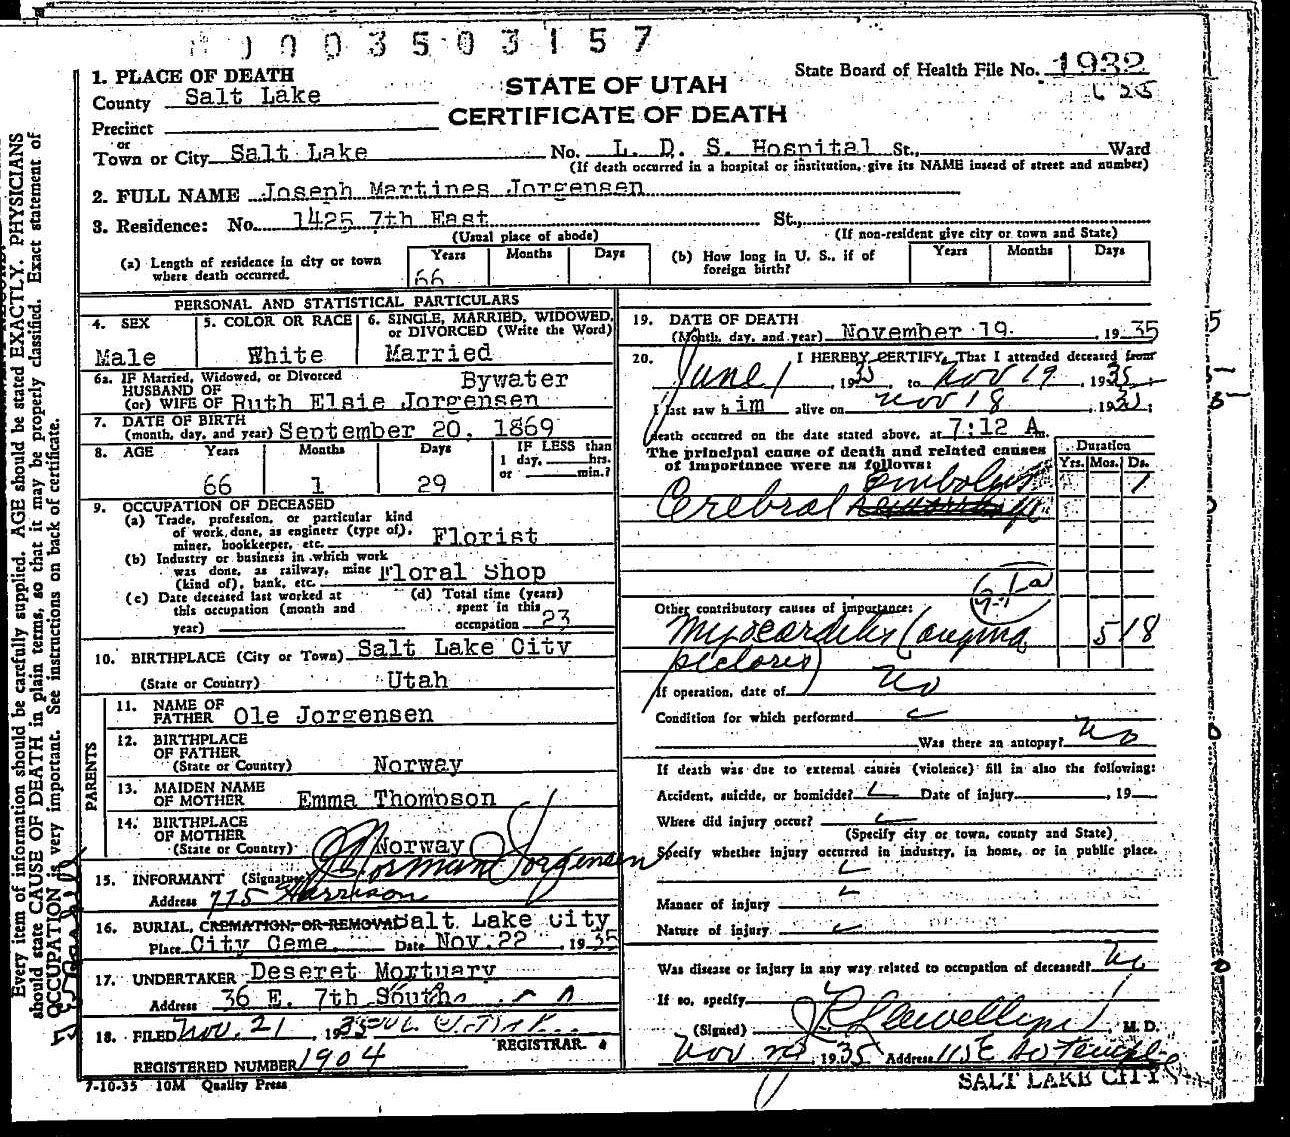 0003503157
1. PLACE OF DEATH
County Salt Lake
Precinct
or
Town or City Salt Lake No. L. D. S. Hospital St., Ward
(If death occurred in a hospital or institution, give its NAME insead of street and number)
STATE OF UTAH
CERTIFICATE OF DEATH
State Board of Health File No. 1932
2. FULL NAME Joseph Martines Jorgensen
3. Residence: No. 1425 7th East St.,
(Usual place of abode) (If non-resident give city or town and State)
(a) Length of residence in city or town where death occurred. Years 66 Months Days
(b) How long in U. S., if of foreign birth? Years Months Days
PERSONAL AND STATISTICAL PARTICULARS
4. SEX Male
5. COLOR OR RACE White
6. SINGLE, MARRIED, WIDOWED, or DIVORCED (Write the Word) Married
6a. IF Married, Widowed, or Divorced
HUSBAND OF Bywater
(or) WIFE OF Ruth Elsie Jorgensen
7. DATE OF BIRTH
(month, day, and year) September 20, 1869
8. AGE Years 66 Months 1 Days 29
IF LESS than
1 day, hrs.
or min.?
9. OCCUPATION OF DECEASED
(a) Trade, profession, or particular kind
of work done, as engineer (type of),
miner, bookkeeper, etc. Florist
(b) Industry or business in which work
was done, as railway, mine
(kind of), bank, etc. Floral Shop
(c) Date deceased last worked at
this occupation (month and
year)
(d) Total time (years)
spent in this
occupation 23
10. BIRTHPLACE (City or Town) Salt Lake City
(State or Country) Utah
PARENTS
11. NAME OF
FATHER Ole Jorgensen
12. BIRTHPLACE
OF FATHER
(State or Country) Norway
13. MAIDEN NAME
OF MOTHER Emma Thompson
14. BIRTHPLACE
OF MOTHER
(State or Country) Norway
15. INFORMANT (Signature) J Norman Jorgensen
Address 775 Harrison
16. BURIAL, CREMATION, OR REMOVAL Salt Lake City
Place City Ceme. Date Nov. 22, 1935
17. UNDERTAKER Deseret Mortuary
Address 36 E. 7th South
18. FILED Nov. 21, 1935
REGISTRAR.
REGISTERED NUMBER 1904
7-10-35 10M Quality Press
19. DATE OF DEATH
(Month, day, and year) November 19. 1935
20. I HEREBY CERTIFY, That I attended deceased from
June 1, 1935, to Nov 19, 1935
I last saw him alive on Nov 18, 1935;
death occurred on the date stated above, at 7:12 A m.
The principal cause of death and related causes
of importance were as follows:
Duration
Yrs. Mos. Ds.
Cerebral embolus 1
Other contributory causes of importance:
Myocarditis (angina 5 18
pectoris)
If operation, date of no
Condition for which performed
Was there an autopsy? no
If death was due to external causes (violence) fill in also the following:
Accident, suicide, or homicide? Date of injury , 19
Where did injury occur?
(Specify city or town, county and State)
Specify whether injury occurred in industry, in home, or in public place.
Manner of injury
Nature of injury
Was disease or injury in any way related to occupation of deceased? no
If so, specify
(Signed) Llewellyn, M. D.
Nov 1935 Address 115 E So Temple
SALT LAKE CITY
Every item of information should be carefully supplied. AGE should be stated EXACTLY. PHYSICIANS
should state CAUSE OF DEATH in plain terms, so that it may be properly classified. Exact statement of
OCCUPATION is very important. See instructions on back of certificate.